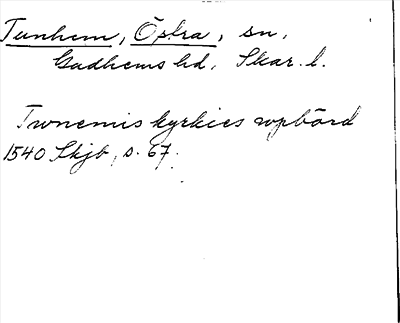 Tunhem, Östra, sn,
Gudhems hd, Skar. l.
Twnemis kyrkies wpbörd
1540 Skjb, s. 67.